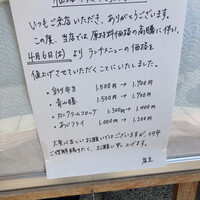 いつもご来店いただき、ありがとうございます。
この度、当店では原材料価格の高騰に伴い、
4月6日(木)よりランチメニューの価格を
値上げさせていただくことにいたしました。
・彩り弁当 1.500円 → 1.700円
・ 1.500円 → 1.700円
・カニクリームコロッケ 1.300円 → 1.400円
・あじフライ 1.000円 → 1.200円
大変心苦しいお願いではございますが、
ご理解賜りたく、お願い申し上げます。
店主